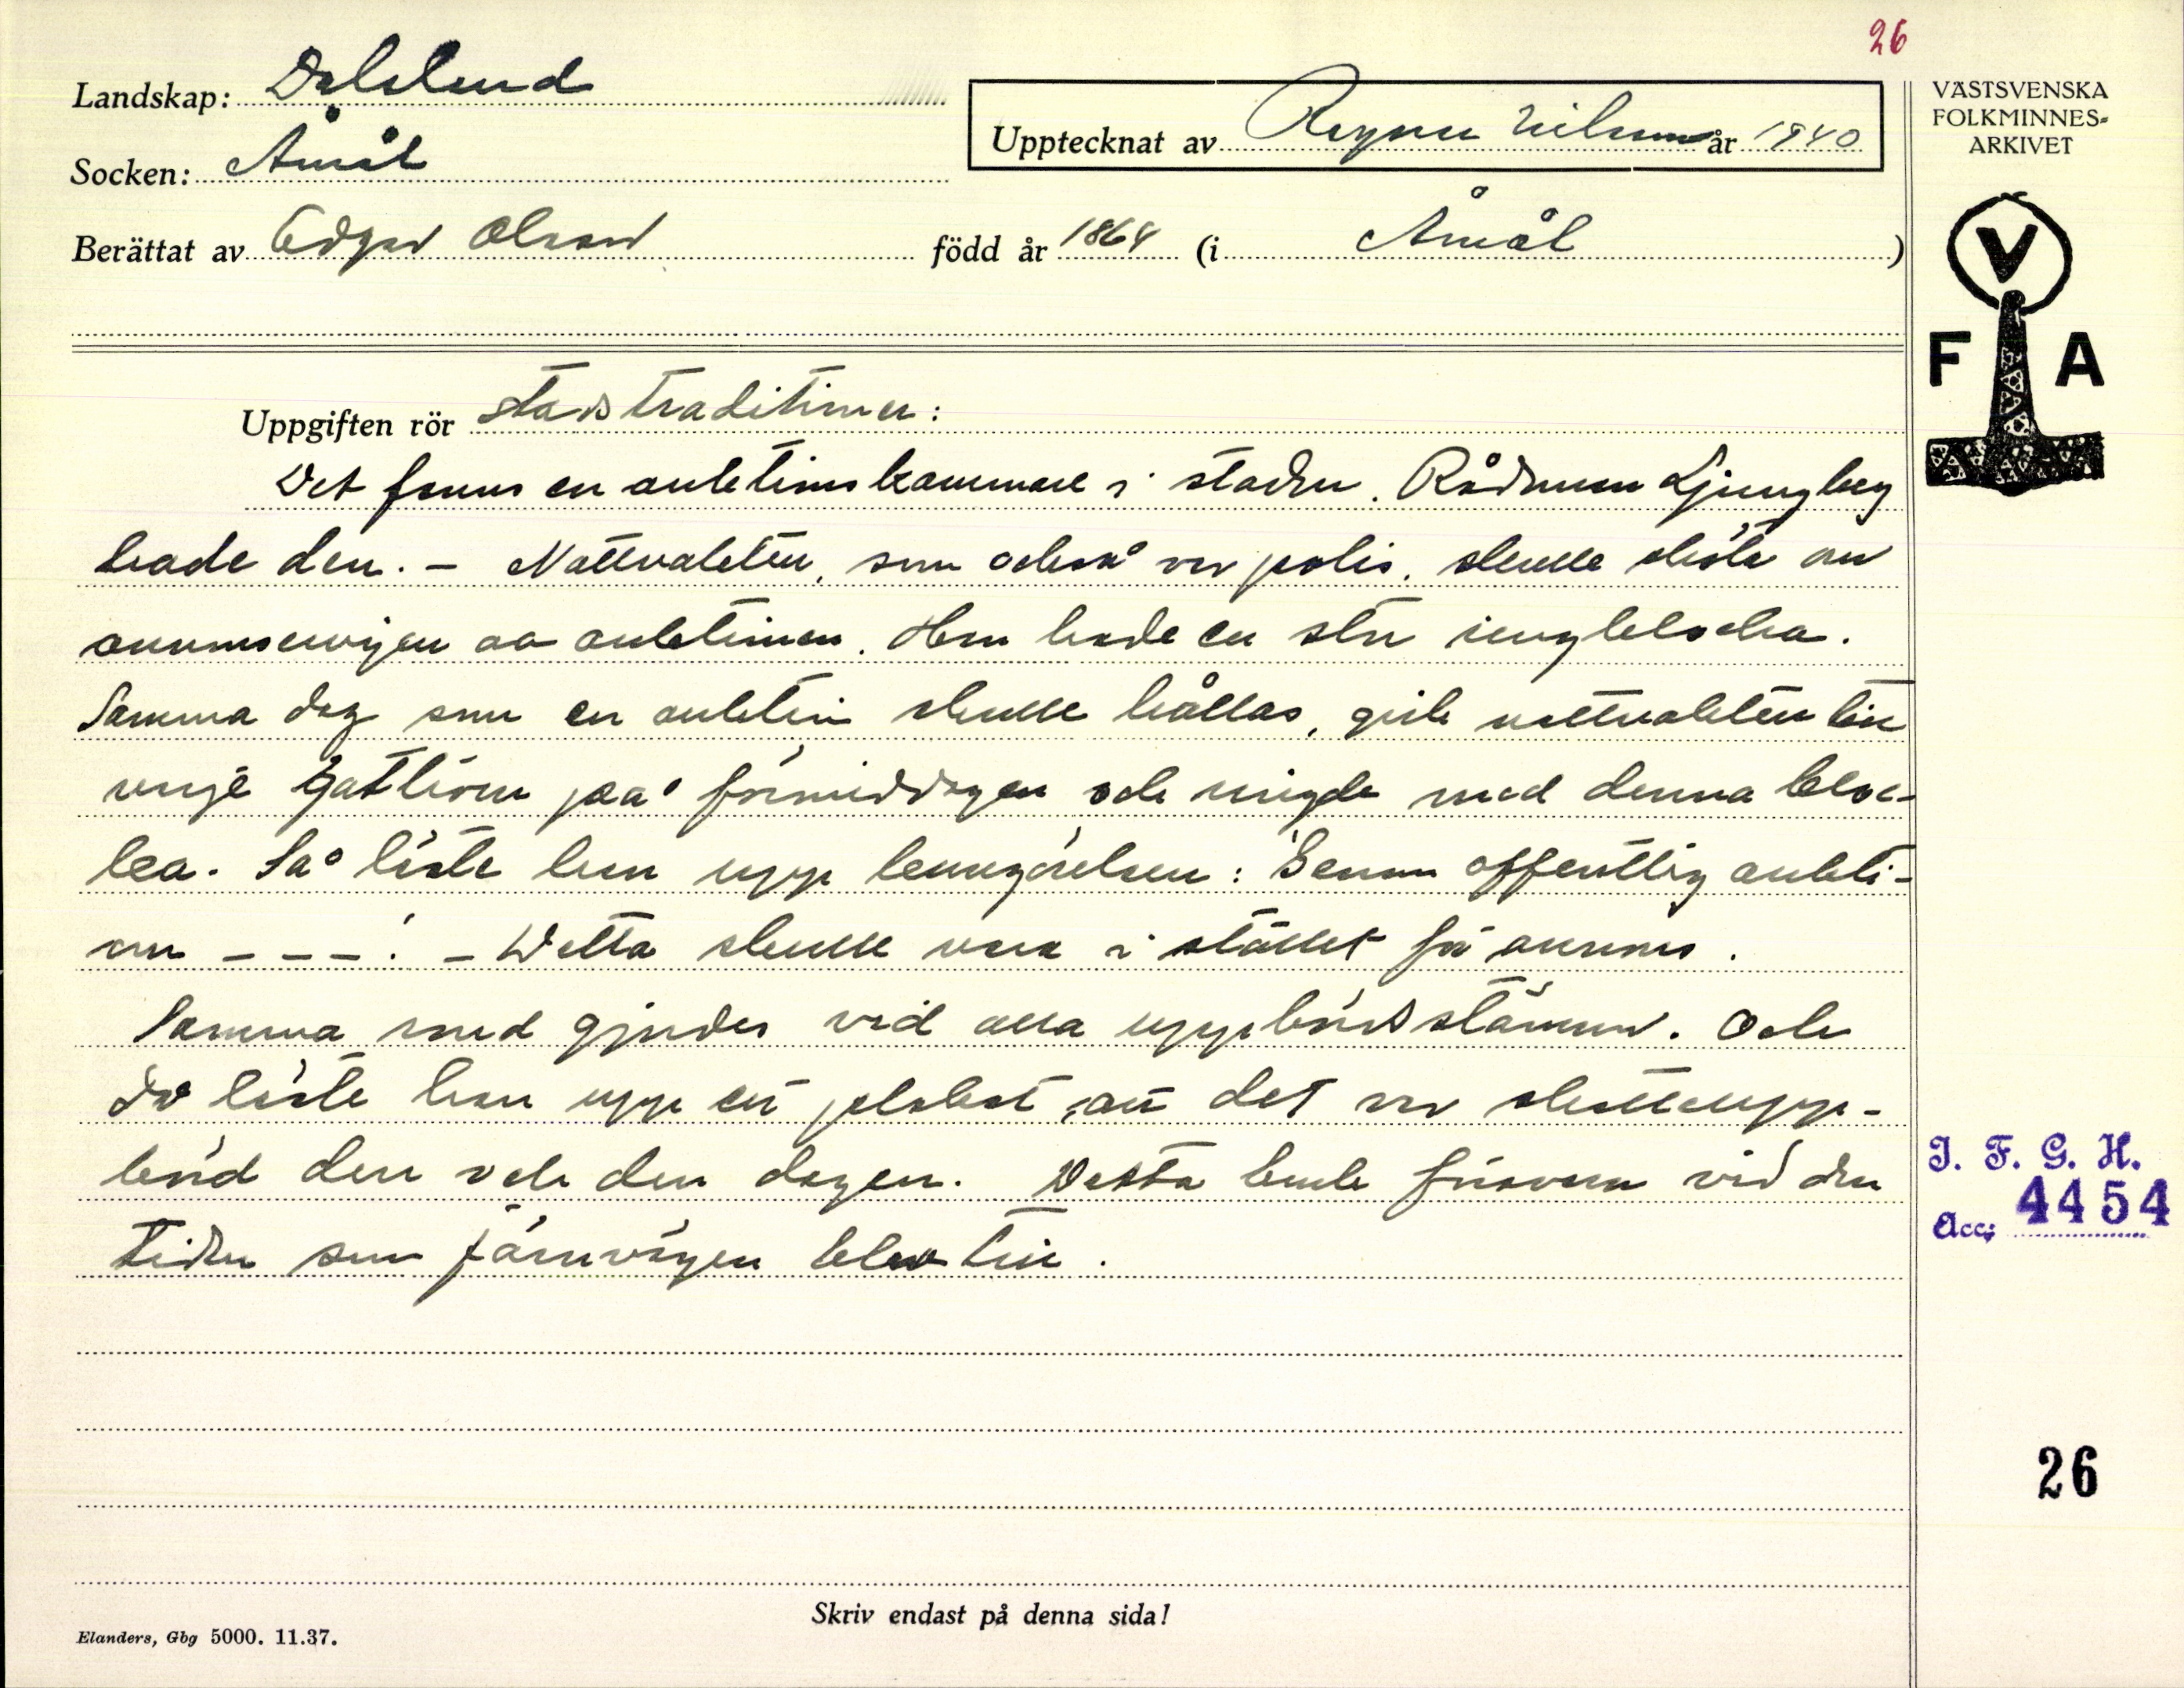 26
Landskap: Dalsland
Socken: Åmål
Upptecknat av Ragnar Nilsson år 1940
Berättat av Edgar Olsson född år 1864 (i Åmål)
VÄSTSVENSKA
FOLKMINNES-
ARKIVET
V
F A
Uppgiften rör stadstraditioner:
Det fanns en auktionskammare i staden. Rådman Ljungberg
hade den. – Nattvakten, som också var polis, skulle sköta om
annonseringen av auktionen. Han hade en stor ringklocka.
Samma dag som en auktion skulle hållas, gick nattvakten till
varje gathörn på förmiddagen och ringde med denna kloc-
ka. Så läste han upp kungörelsen: Genom offentlig aukti-
on – – – ! – Detta skulle vara i stället för annons.
Samma med gjordes vid alla uppbördsstämmor. Och
då läste han upp ett plakat, att det var skatteupp-
börd den och den dagen. Detta hade försvann vid den
tiden som järnvägen blev till.
I. F. G. H.
Acc: 4454
26
Skriv endast på denna sida!
Elanders, Gbg 5000. 11.37.